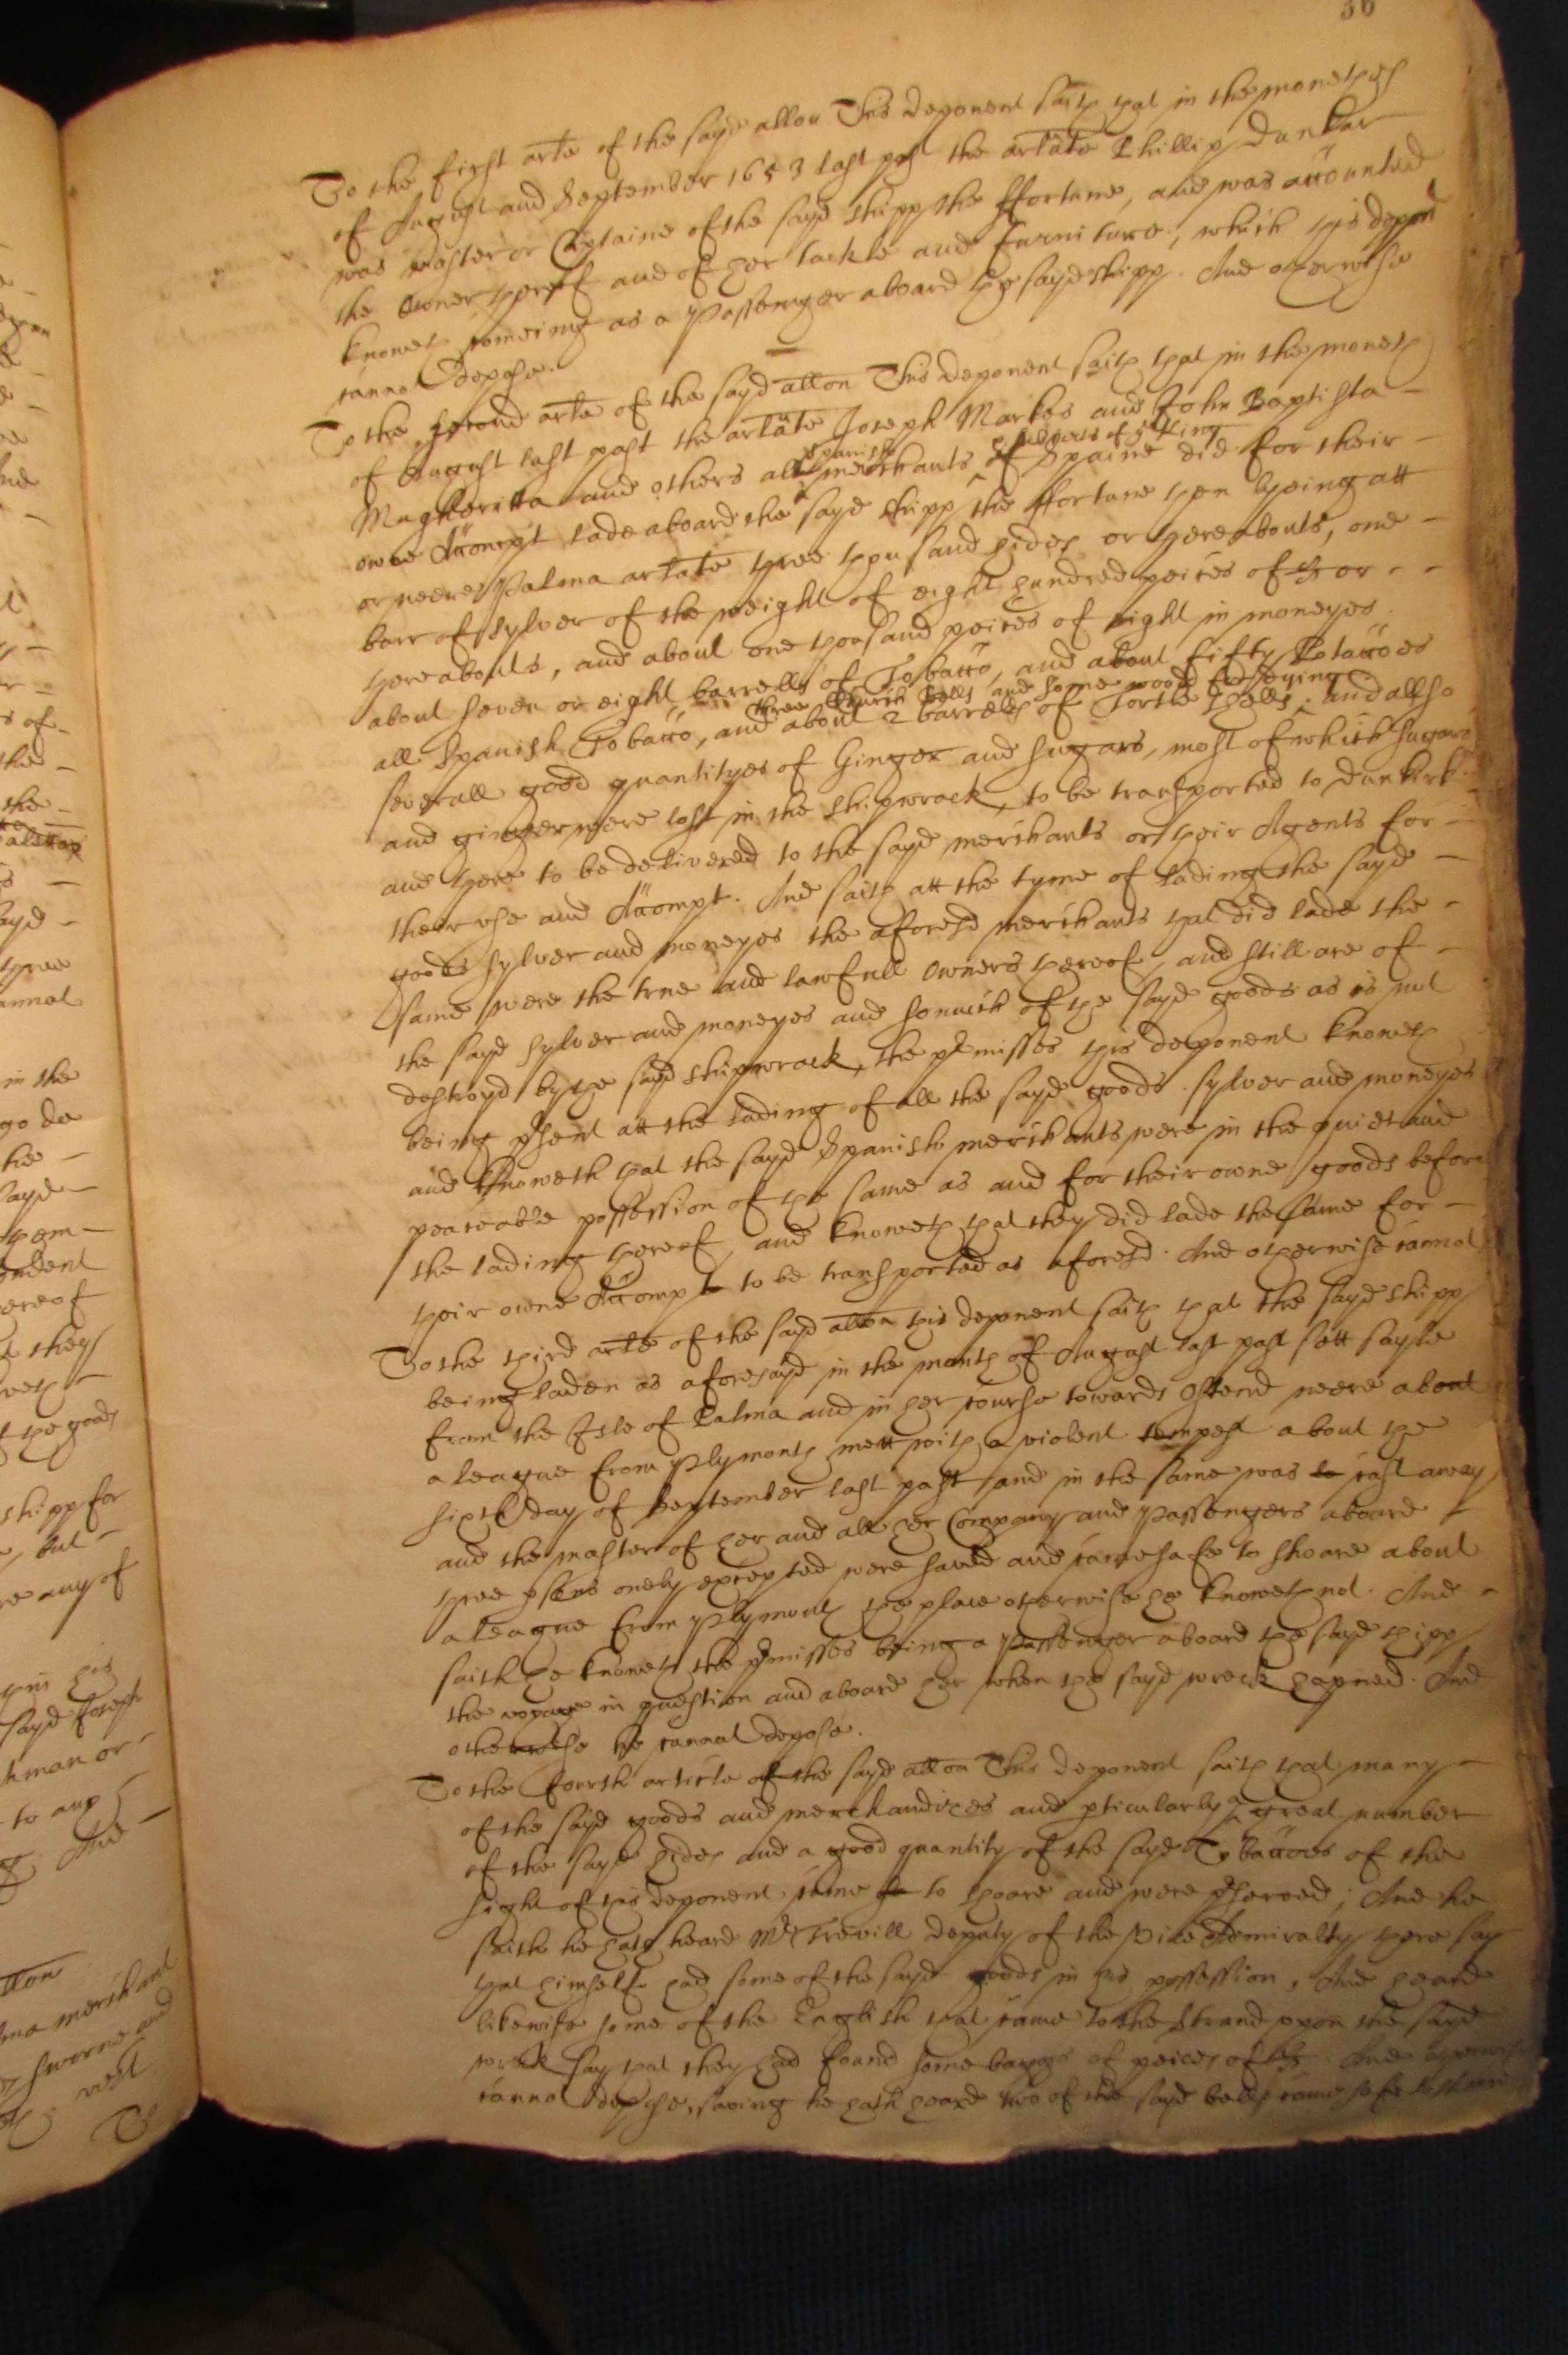 36
To the first arte of the sayd allon This deponent saith that in the moneths
of August and September 1653 last past the artate Phillip Dunkar
was master or Captaine of the sayd shipp the ffortune, and was accounted
the owner thereof and of her tackle and furniture, which this depont
knoweth comeing as a Passenger aboard the sayd shipp. And otherwise
cannot depose.
To the second arte of the sayd allon This deponent saith that in the moneth
of August last past the artate Joseph Markes and John Baptista
Magheritta and others all Spanish merchants & subjects of ye King of Spaine did for their
owne Accompt lade aboard the sayd shipp the ffortune then lyeing att
or neere Palma artate three thousand hides or thereabouts, one
barr of sylver of the weight of eight hundred peices of 8/8 or
thereabouts, and about one thousand peices of eight in moneyes.
about seven or eight barrells of Tobacco, and about fifty Potaccoes
all Spanish Tobacco, three Church bells and some wood for dying
and about 2 barrells of Tortle shells, and allso
severall good quantityes of Ginger and sugars, most of which sugars
and ginger were lost in the shipwrack, to be transported to Dunkirk
and there to be delivered to the sayd merchants or their Agents for
their use and Accompt. And saith att the tyme of lading the sayd
goods sylver and moneyes the aforesd merchants that did lade the
same were the true and lawfull owners thereof, and still are of
the sayd sylver and moneyes and somuch of the sayd goods as is not
destroyd by the sayd shipwrack, the pmisses this deponent knoweth
being psent att the lading of all the sayd goods sylver and moneyes
and knoweth that the sayd Spanish merchants were in the quiet and
peaceable possession of the same as and for their owne goods before
the lading thereof, and knoweth that they did lade the same for
their owne Accompt to be transported as aforesd. And otherwise cannot
To the third arte of the sayd allon this deponent saith that the sayd shipp
being laden as aforesayd in the month of August last past sett sayle
from the Isle of Palma and in her course towards Ostend neere about
a league from Plymouth mett with a violent tempest about the
sixth day of September last past and in the same was cast away
and the master of her and all her Company and Passengers aboard
three psons onely excepted were saved and came safe to shoare about
a league from Plymouth the place otherwise he knoweth not. And
saith he knoweth the pmisses being a Passenger aboard the sayd shipp
the voyage in question and aboard her when the sayd wreck hapned. And
otherwise he cannot depose.
To the fourth article of the sayd allon This deponent saith that many
of the sayd goods and merchandizes and pticularly a great number
of the sayd hides and a good quantity of the sayd Tobaccoes of the
sight of this deponent came to shoare and were pserved; And he
saith he hath heard Mr Trevill deputy of the Vice Admiralty there say
that himselfe had some of the sayd goods in his possession, And heard
likewise some of the English that came to the strand upon the sayd
wrack say that they had found some baggs of peices of 8/8 And otherwise
cannot depose, saving he hath heard two of the sayd bells came safe to shoare